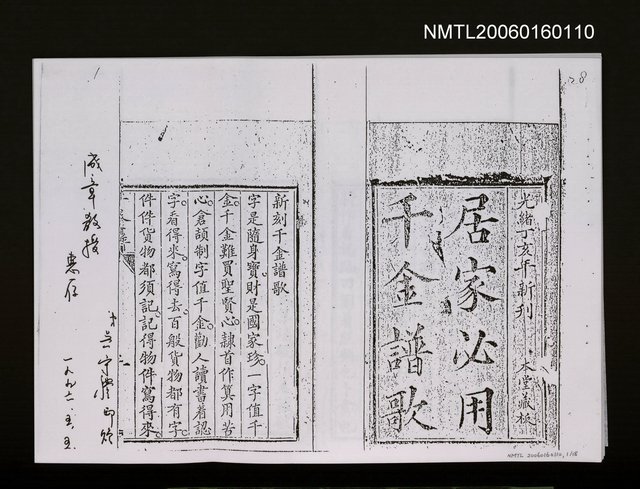 NMTL20060160110
28
光緒丁亥年新刊
木堂藏板
居家必用
千金譜歌
新刻千金譜歌
字是隨身寶。財是國家珍。一字值千
金。千金難買聖賢心。隸首作算用苦
心。倉頡制字值千金。勸人讀書着認
字。看得來。寫得去。百般貨物都有字。
件件貨物都須記。記得物件寫得來。
1
成章教授
惠存
一九九六.五.五
NMTL 20060160110, 1/18